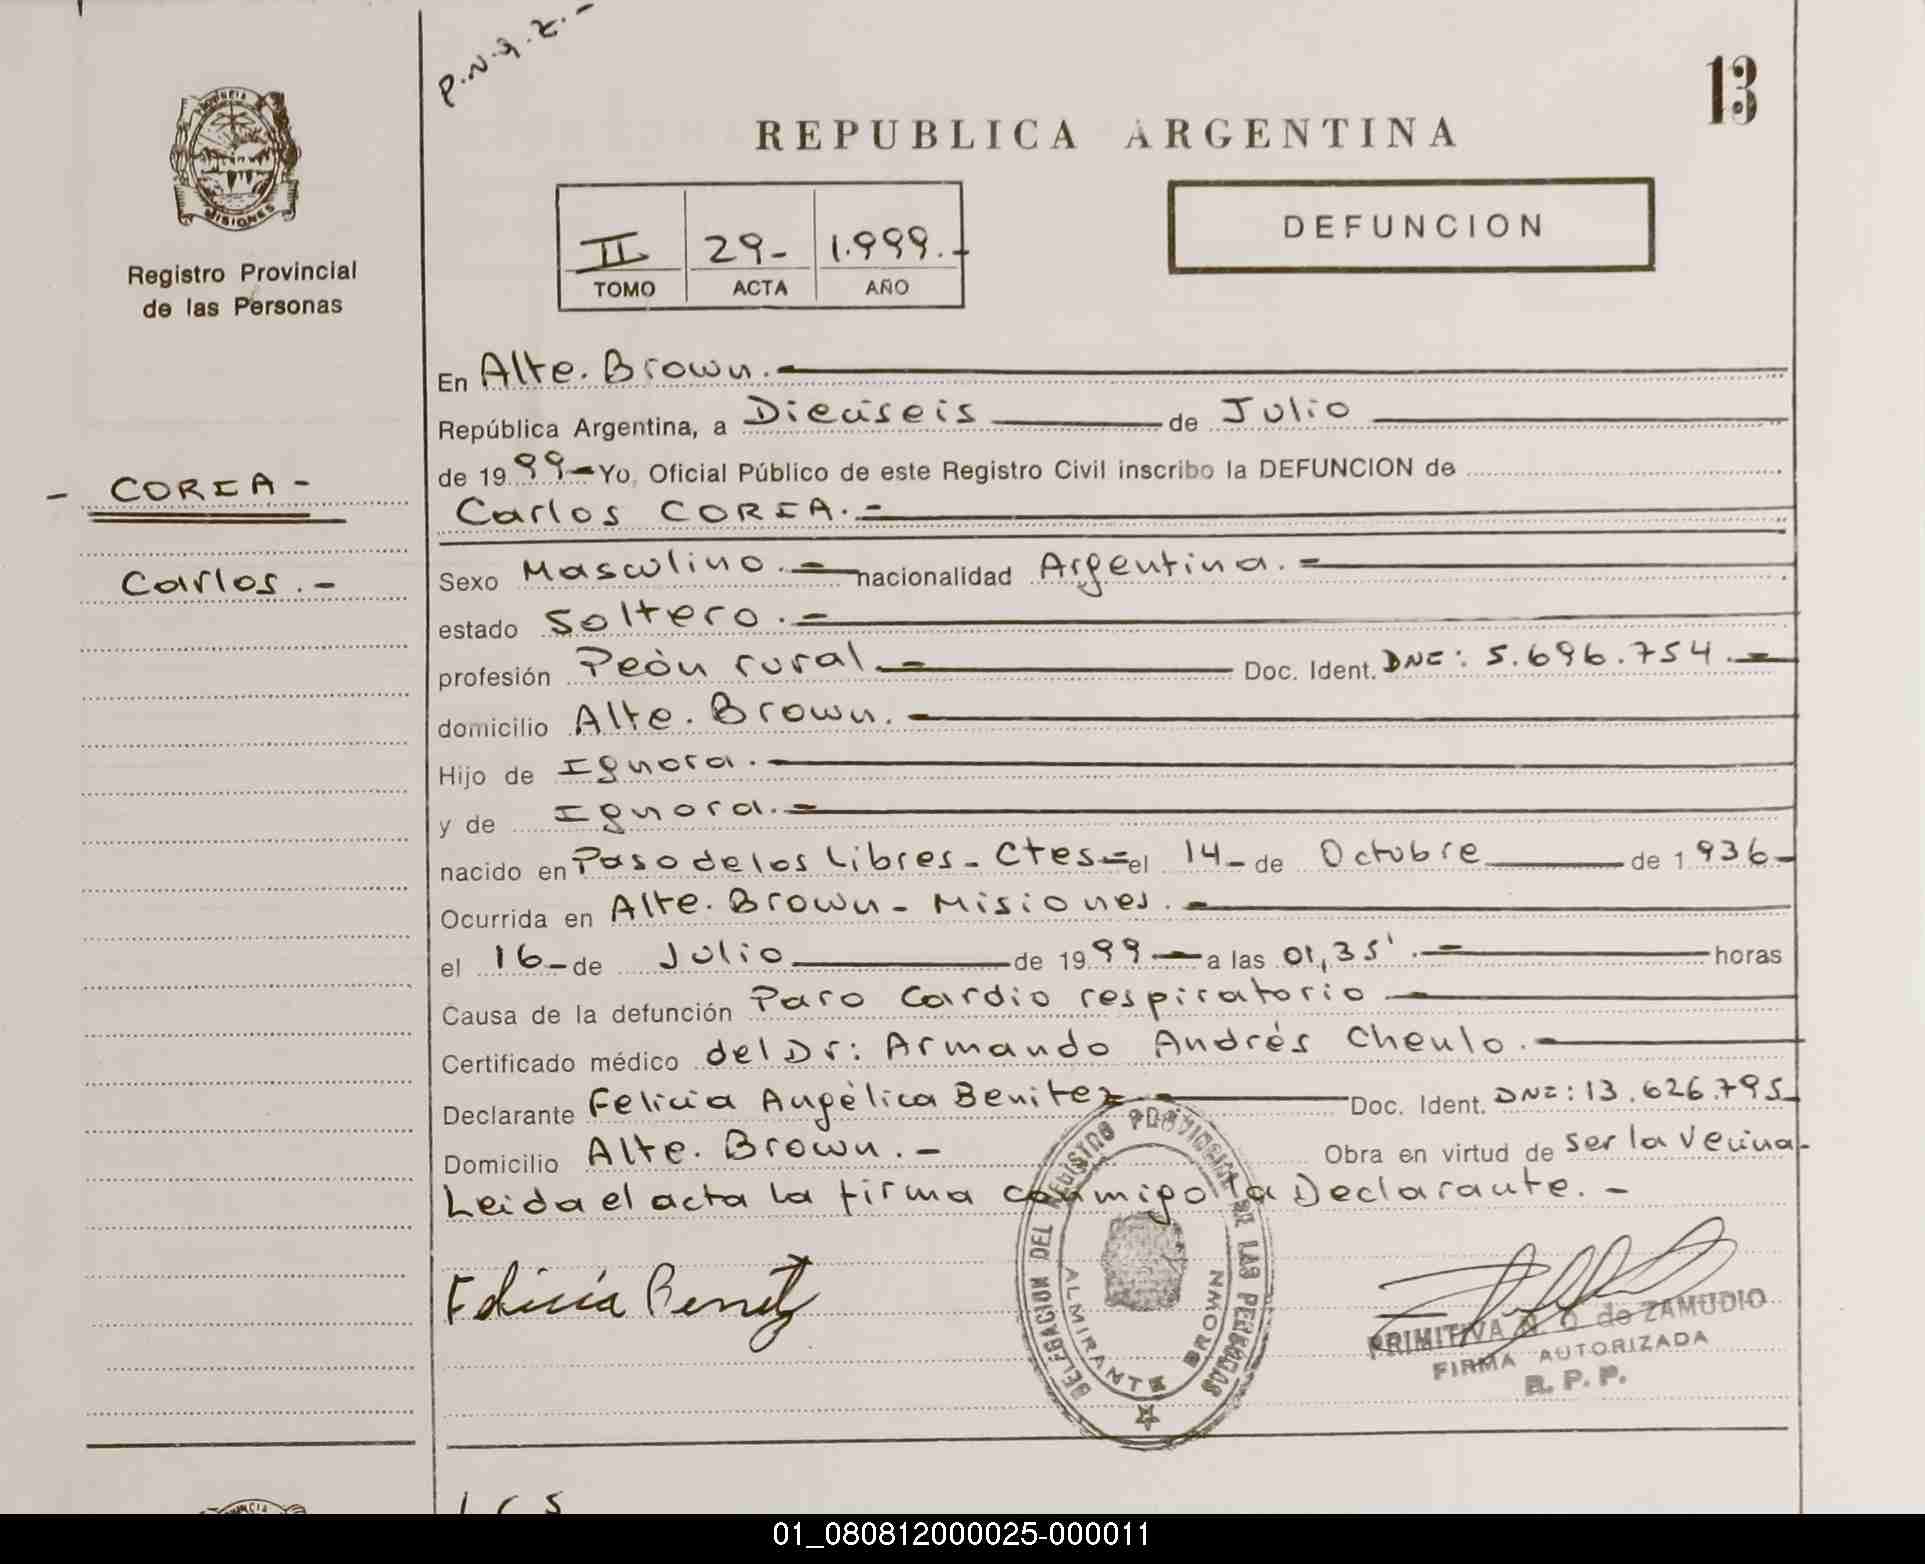 P.N.Q.Z.-
13
PROVINCIA
MISIONES
REPUBLICA ARGENTINA
Registro Provincial
de las Personas
II 29- 1.999.-
TOMO ACTA AÑO
DEFUNCION
- COREA -
Carlos.-
En Alte. Brown.-
República Argentina, a Dieciseis de Julio
de 1999- Yo, Oficial Público de este Registro Civil inscribo la DEFUNCION de
Carlos COREA.-
Sexo Masculino.- nacionalidad Argentina.-
estado Soltero.-
profesión Peón rural.- Doc. Ident. DNI: 5.696.754.-
domicilio Alte. Brown.-
Hijo de Ignora.-
y de Ignora.-
nacido en Paso de los Libres - Ctes- el 14- de Octubre de 1936-
Ocurrida en Alte. Brown - Misiones.-
el 16- de Julio de 1999- a las 01,35'.- horas
Causa de la defunción Paro Cardio respiratorio-
Certificado médico del Dr: Armando Andrés Chenlo.-
Declarante Felicia Angélica Benitez- Doc. Ident. DNI: 13.626.795-
Domicilio Alte. Brown.- Obra en virtud de ser la vecina-
Leida el acta la firma conmigo la Declarante.-
Felicia Benitez
DELEGACION DEL REGISTRO PROVINCIAL DE LAS PERSONAS
ALMIRANTE BROWN
PRIMITIVA N. O. de ZAMUDIO
FIRMA AUTORIZADA
R. P. P.
01_080812000025-000011